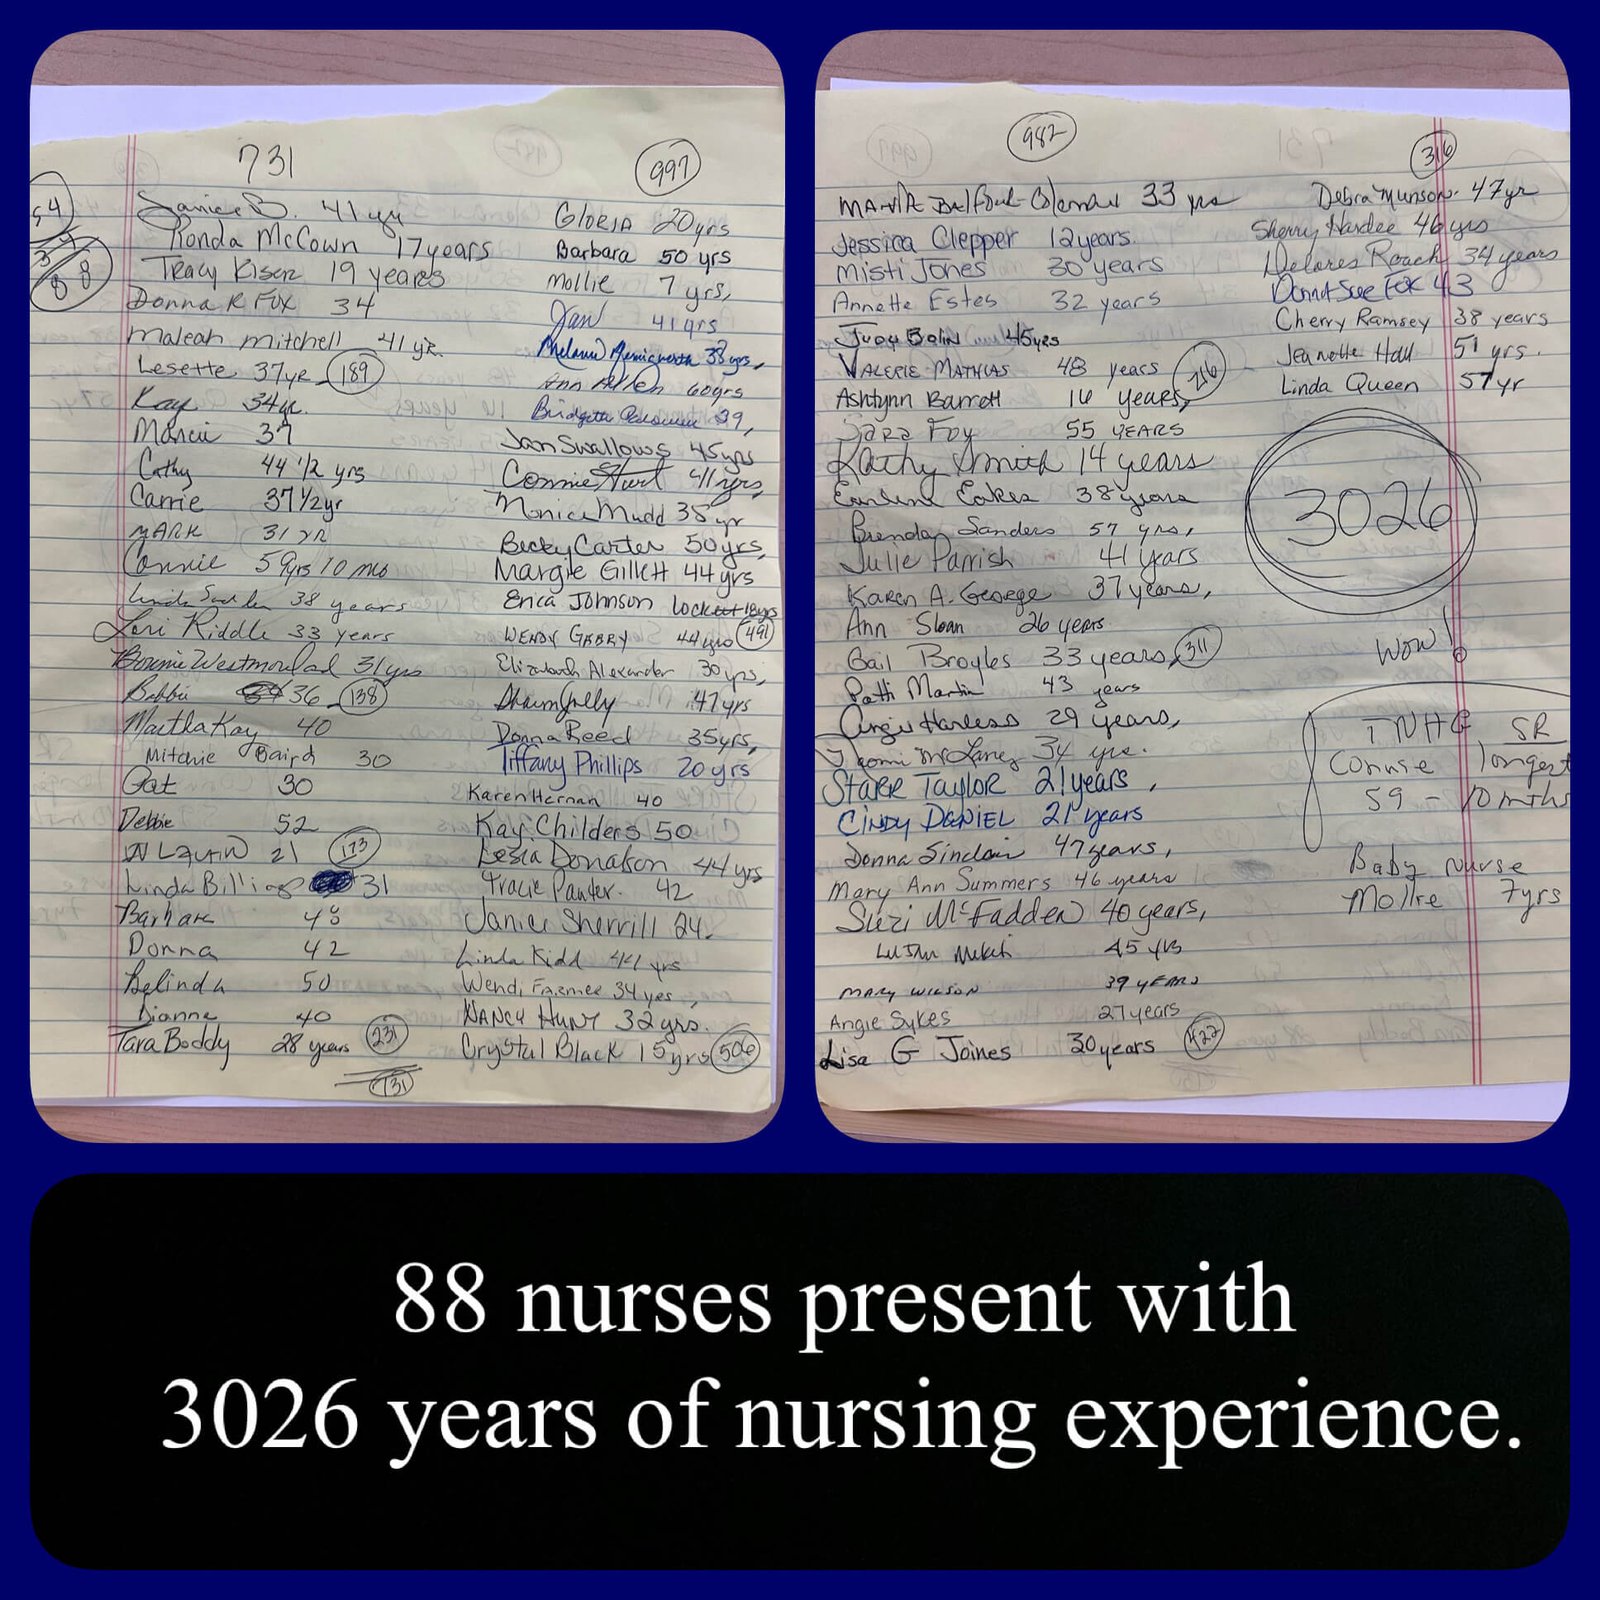 731
997
54
34
88
Janice B. 41 yr
Ronda McCown 17 years
Tracy Kiser 19 years
Donna R Fox 34
Maleah Mitchell 41 yr
Lesette 37yr 189
Kay 34yr.
Marcii 37
Cathy 44 1/2 yrs
Carrie 37 1/2 yr
MARK 31 YR
Connie 59yrs 10 mos
Linda 38 years
Lori Riddle 33 years
Bonnie Westmoreland 31yrs
Bobbie 36 138
Martha Kay 40
Mitchie Baird 30
Pat 30
Debbie 52
21 173
Linda Billings 31
Barbara 48
Donna 42
Belinda 50
Dianne 40
Tara Boddy 28 years 231
731
GLORIA 20yrs
Barbara 50 yrs
Mollie 7 yrs,
Jan 41 yrs
Melanie 38 yrs,
Ann Allen 60yrs
Bridgette 39,
Jan Swallows 45yrs
Connie Hurt 41 yrs,
Monica Mudd 35 yr
Becky Carter 50yrs,
Margie Gillett 44yrs
Erica Johnson Lockett 18yrs
WENDY GABBY 44yrs 491
Elizabeth Alexander 30 yrs,
47 yrs
Donna Reed 35yrs,
Tiffany Phillips 20 yrs
Karen Hernan 40
Kay Childers 50
Lesia Donalson 44 yrs
Tracie Panter. 42
Janice Sherrill 24.
Linda Kidd 44 yrs
Wendi Farmer 34 yes,
NANCY HUNT 32 yrs.
Crystal Black 15yrs 506
982
316
Balfour-Coleman 33 yrs
Jessica Clepper 12 years.
Misti Jones 30 years
Annette Estes 32 years
Judy Bolin 45yrs
VALERIE MATHIAS 48 years 216
Ashtynn Barrett 16 years,
Sara Foy 55 YEARS
Kathy Smith 14 years
Earlene Eakes 38 years
Brenda Sanders 57 yrs,
Julie Parrish 41 years
Karen A. George 37 years,
Ann Sloan 26 years.
Gail Broyles 33 years, 311
Patti Martin 43 years
Angie Harless 29 years,
Naomi McLaney 34 yrs.
STARR TAYLOR 21 years,
CINDY DANIEL 21 years
Donna Sinclair 47 years,
Mary Ann Summers 46 years
Suzi McFadden 40 years,
45 yrs
MARY WILSON 39 YEARS
Angie Sykes 27 years
Lisa G Joines 30 years 422
Debra Munson 47 yr
Sherry Hardee 46 yrs
Delores Roach 34 years
Donna Sue Fox 43
Cherry Ramsey 38 years
Jeanette Hall 51 yrs.
Linda Queen 57yr
3026
WOW!
TNHG SR
Connie longest
59 - 10 mths
Baby nurse
Mollie 7yrs
88 nurses present with
3026 years of nursing experience.